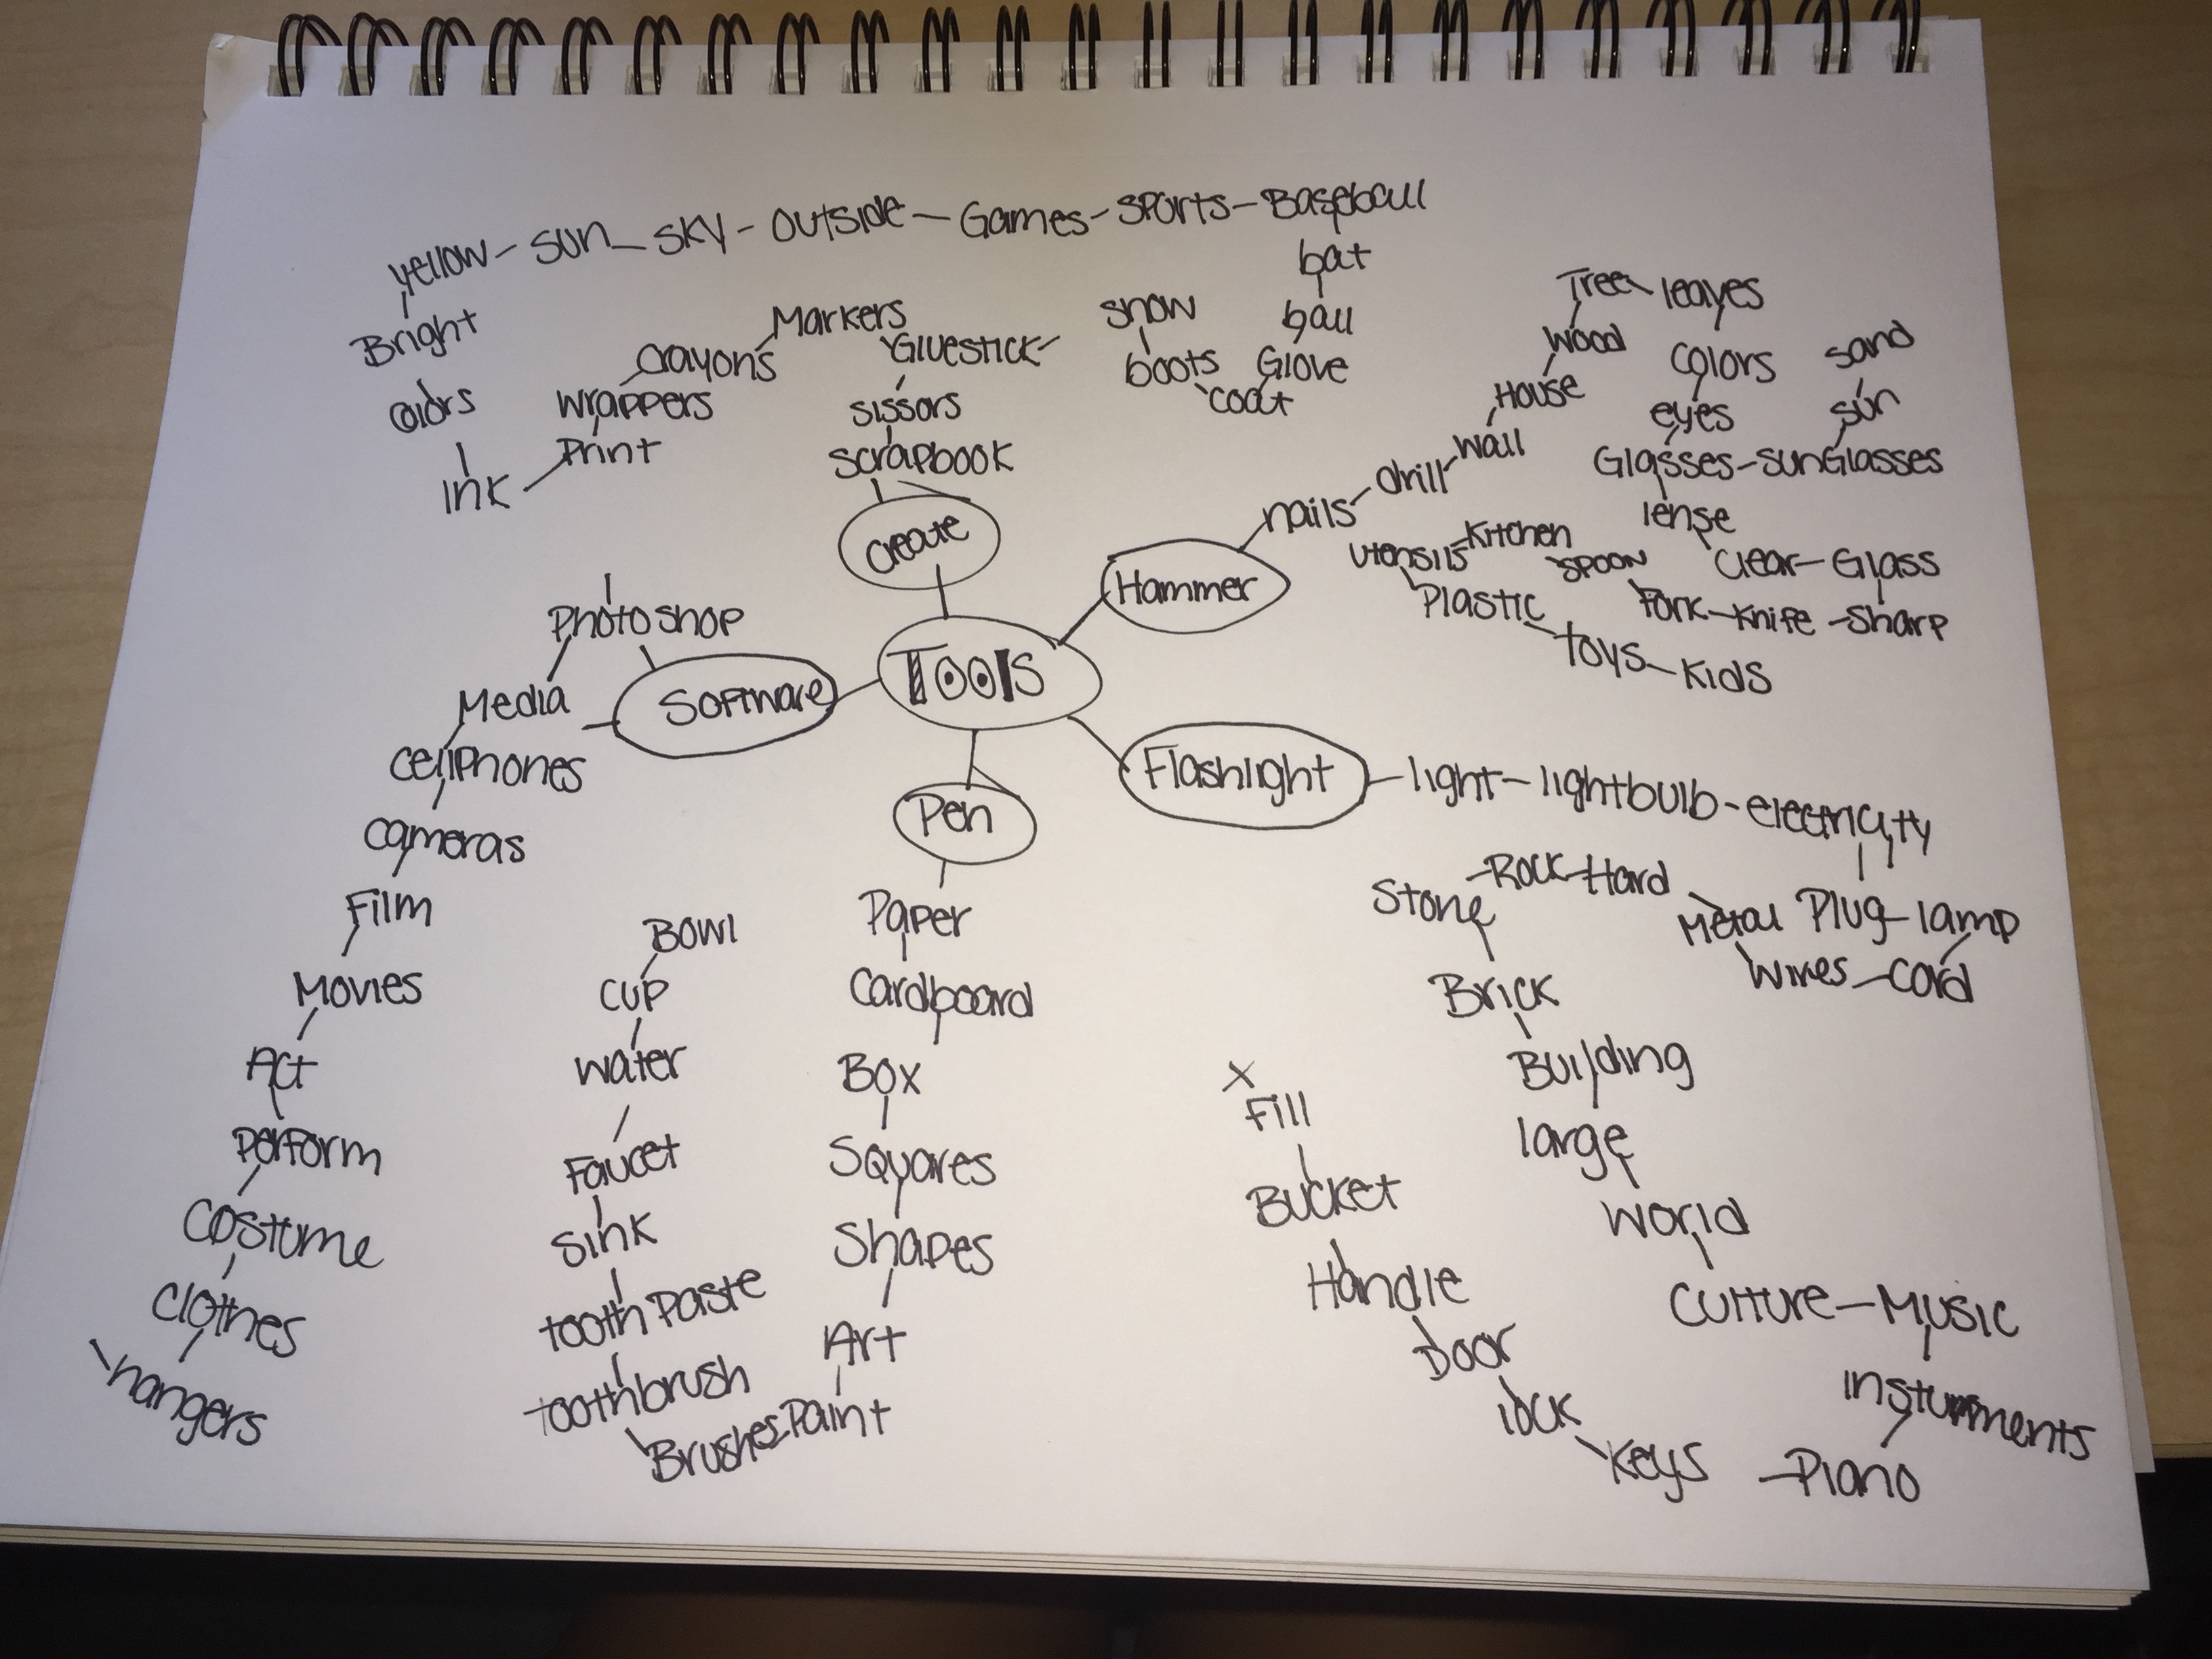 yellow - sun - sky - outside - Games - sports - Baseball
bat
ball
Glove
coat
boots
snow
Bright
colors
Ink
Print
wrappers
crayons
Markers
Gluestick
sissors
scrapbook
create
Tree - leaves
wood
House
wall
drill
nails
Hammer
colors
eyes
Glasses - sunGlasses
sun
sand
lense
clear - Glass
Sharp
Fork - Knife - Sharp
spoon
Kitchen
utensils
Plastic
toys - Kids
Tools
Photoshop
Software
Media
cellPhones
cameras
Film
Movies
Act
Perform
Costume
Clothes
hangers
Flashlight - light - lightbulb - electricity
Plug - lamp
Wires - Cord
Metal
Stone - Rock - Hard
Brick
Building
large
World
Culture - Music
insturments
Piano
Keys
lock
Door
Handle
Bucket
Fill
x
Pen
Paper
Cardboard
Box
Squares
Shapes
Art
Brushes Paint
toothbrush
tooth Paste
Sink
Faucet
water
cup
Bowl